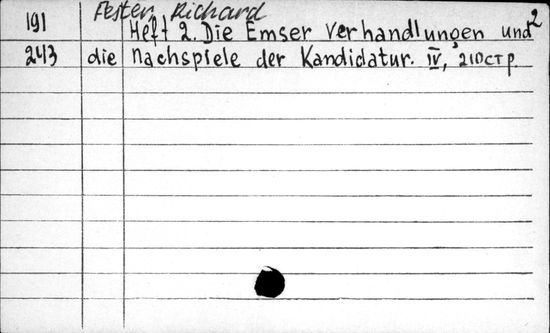 Fester, Richard
2
191 Heft 2. Die Emser Verhandlungen und
243 die Nachspiele der Kandidatur. IV, 210 стр.